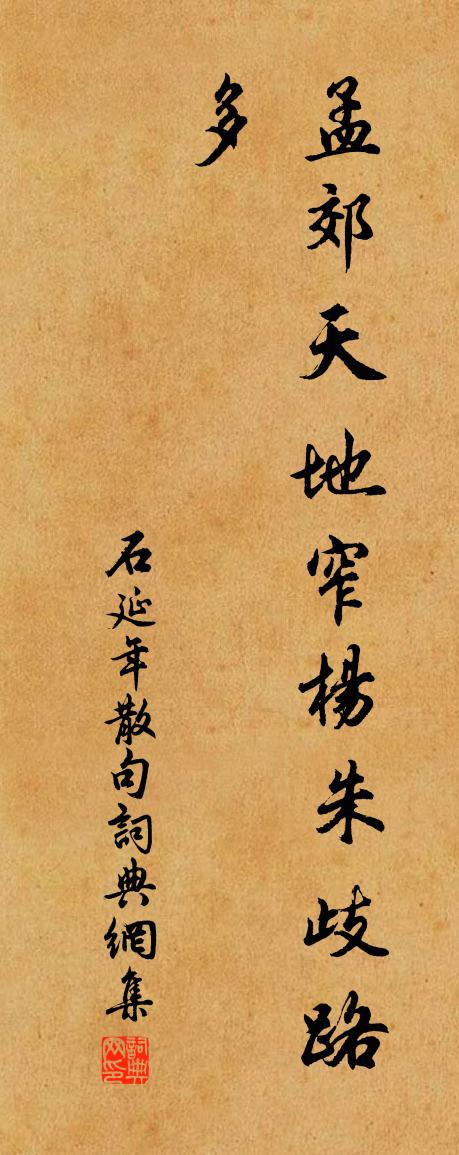 孟郊天地窄楊朱歧路
多
石延年散句詞典網集
詞典网印